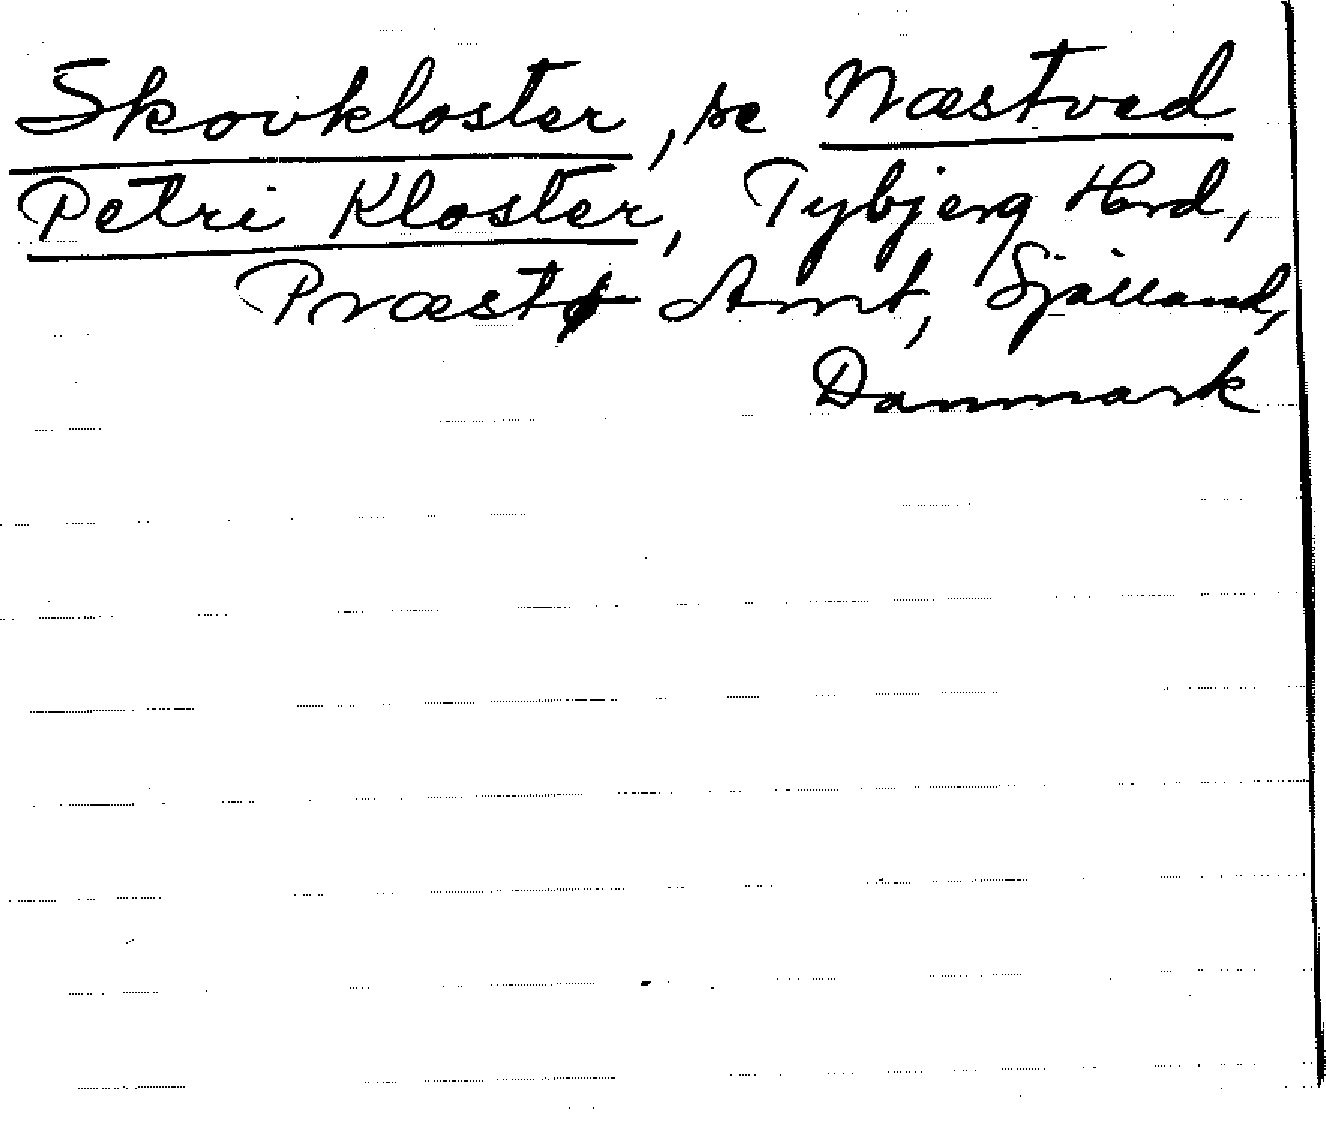 Skovkloster, se Næstved
Petri Kloster, Tybjerg Hrd,
Præstø Amt, Sjælland,
Danmark